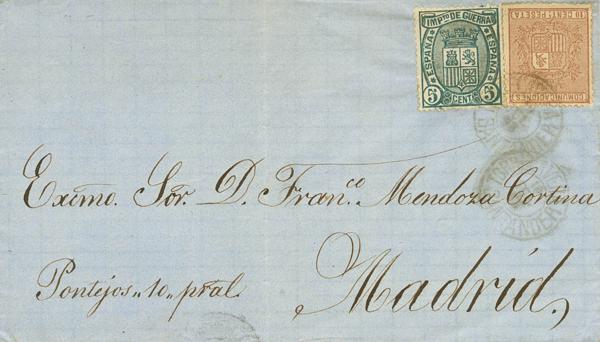 IMPTO DE GUERRA
ESPAÑA
ESPAÑA
5 CENT. 5
10 CENT. PESETA
COMUNICACIONES
SANTANDER
Exémo. Sor. D. Fran.co Mendoza Cortina
Pontejos „ 10 „ pral.
Madrid,